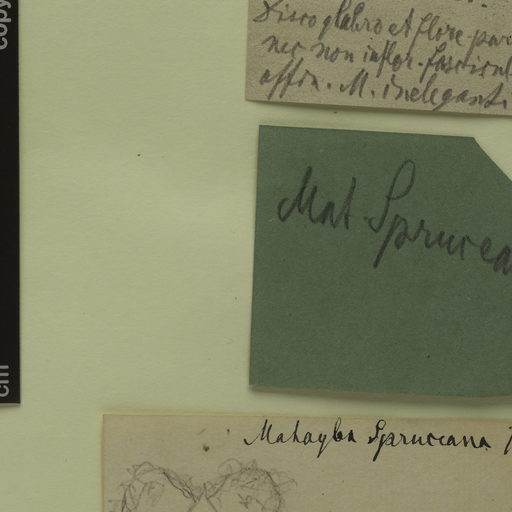 copy
Disco glabro et flore par
nec non inflor. fascicul
affin. M. ineleganti
Mat. Sprucea
Matayba Spruceana
cm